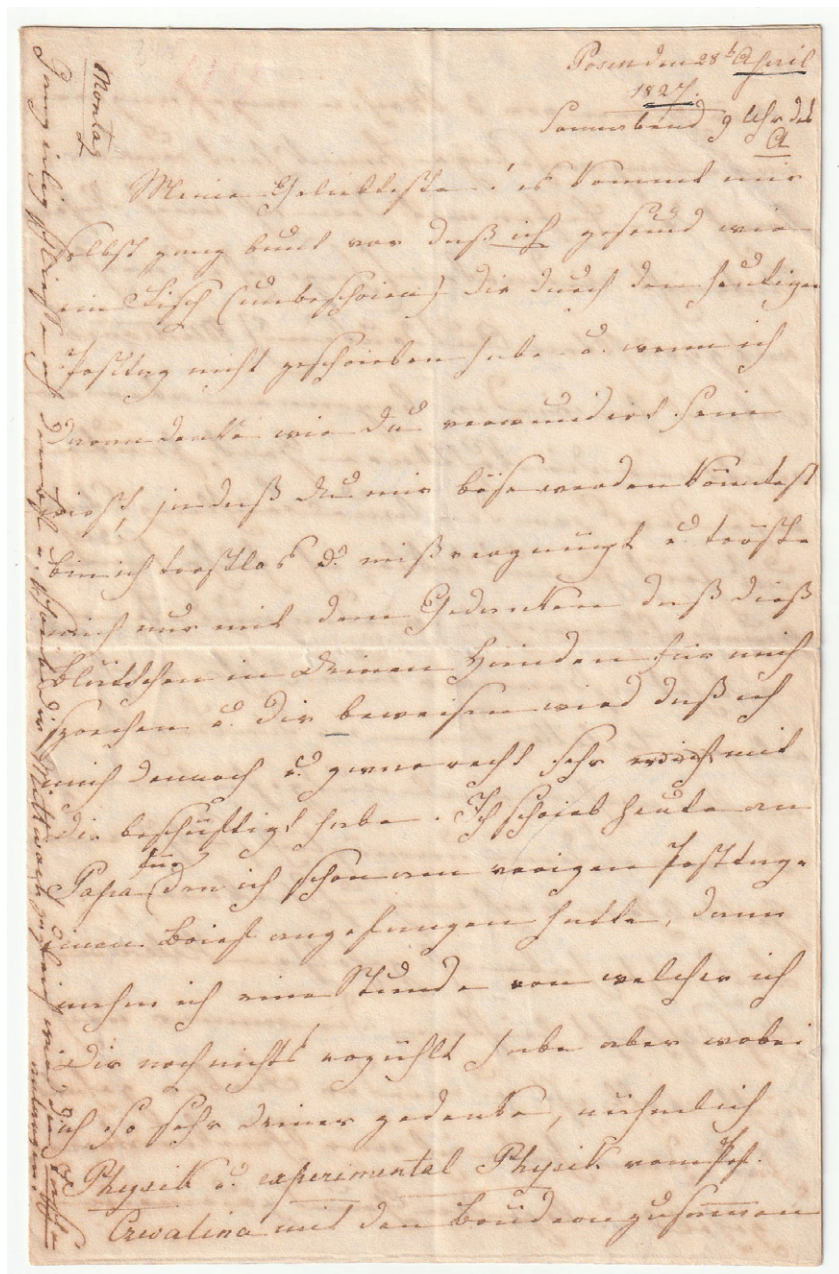 Posen den 28t April
1827.
Sonnabend 9 Uhr des
A
Meine Geliebteste! es kommt mir
selbst ganz bunt vor daß ich gesund wie
ein Fisch (unbeschrien) dir durch den heutigen
Posttag nicht geschrieben habe u. wenn ich
daran denke wie du verwundert sein
wirst, ja daß du mir böse werden könntest
bin ich trostlos u. mißvergnügt u. tröste
mich nur mit dem Gedanken daß dieß
Blättchen in deinen Händen für mich
sprechen u. dir beweisen wird daß ich
mich dennoch u. zwar recht sehr mit
dir beschäftigt habe. Ich schrieb heute an
Papa (den ich schon am vorigen Posttage
einen Brief angefangen hatte, dann
nahm ich eine Stunde von welcher ich
dir noch nichts erzählt habe aber wobei
ich so sehr deiner gedenke, nähmlich
Physik u. experimental Physik vom Prof.
Czwalina mit den Brüdern zusammen
Montag
Ganz eilig
Mittwoch